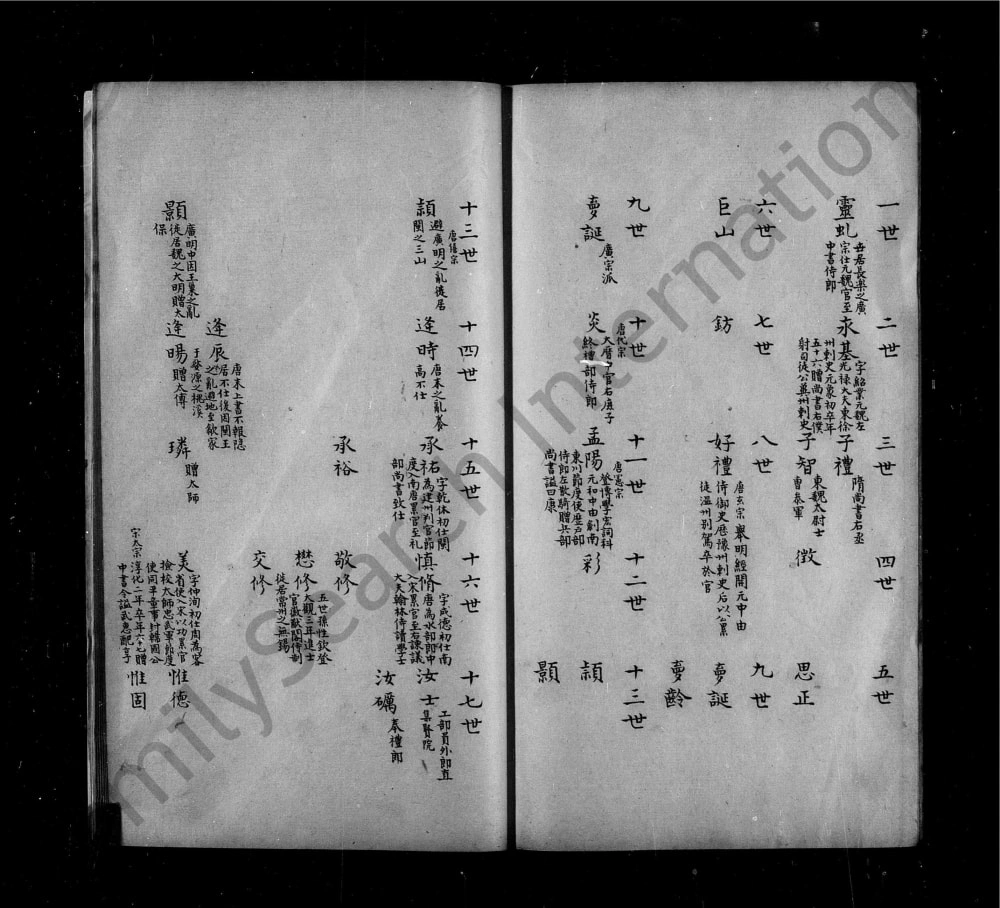 一世
靈虬
世居長樂之廣
宗仕元魏官至
中書侍郎
二世
永基
字紹業元魏左
光祿大夫東徐
州刺史元象初卒年
五十六贈尚書右僕
射司徒公冀州刺史
三世
子禮
隋尚書右丞
子智
東魏太尉士
曹叅軍
四世
徴
五世
思正
六世
巨山
七世
鈁
八世
好禮
唐玄宗舉明經開元中由
侍御史歷豫州刺史后以公累
徒溫州別駕卒於官
九世
夢誕
夢齡
九世
夢誕
廣宗派
十世
唐代宗
炎
大曆中官右庶子
終禮部侍郎
十一世
唐憲宗
孟陽
登博學宏詞科
元和中由劍南
東川節度使歷戶部
侍郎左散騎贈兵部
尚書謚曰康
十二世
彩
十三世
頴
顥
十三世
唐僖宗
頴
避廣明之亂徙居
閩之三山
顥
廣明中因王巢之亂
徙居魏之大明贈太
保
十四世
逢時
唐末之亂養
高不仕
逢辰
唐末上書不報隐
居不仕後因閩王
之亂避地至歙家
于婺源之桃溪
逢暘
贈太傅
十五世
承祐
字乾休初仕閩
為建州判官節
度入南唐累官至礼
部尚書致仕
承裕
璘
贈太師
十六世
慎修
字成德初仕南
唐為水部郎中
入宋累官至右諫議
大夫翰林侍讀學士
敬修
懋修
五世孫性欽登
大觀三年進士
官徽猷閣待制
徙居常州之無錫
交修
宋太宗
美
字仲洵初仕周為客
省使入宋以功累官
撿校太師忠武軍節度
使同平章事封韓國公
淳化二年卒年六十七贈
中書令謚武惠配享
十七世
汝士
工部員外郎直
集賢院
汝礪
奉禮郎
惟德
惟固
milySearch Internation